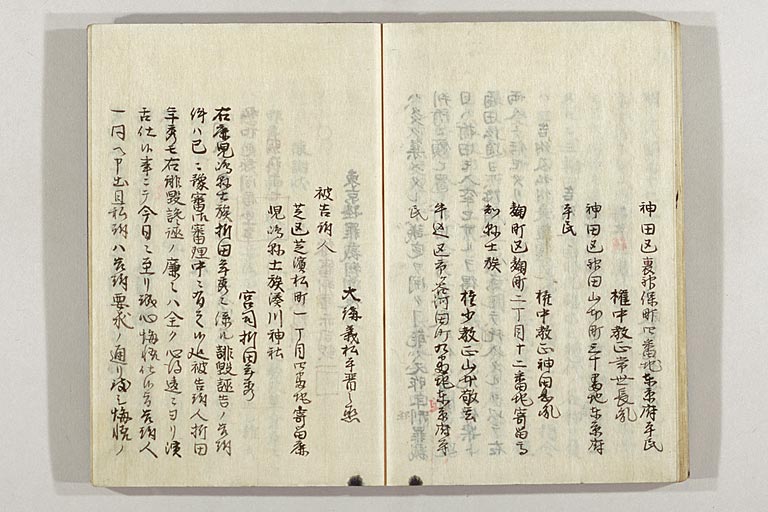 神田区裏神保町四番地東京府平民
権中教正常世長胤
神田区神田山本町三十番地東京府
平民
権中教正神田息胤
麹町区麹町二丁目十二番地寄留高
知縣士族
権少教正山本
牛込区市谷河田町九番地東京府平
民
大講義松平
被告訴人
芝区芝濱松町一丁目四番地寄留鹿
児島縣士族湊川神社
宮司折田年秀
右鹿児島縣士族折田年秀ニ係ル誹毀誣告ノ告訴
件ハ已ニ豫審御審理中ニ有之候処被告訴人折田
年秀モ右誹毀誣ノ廉ハ全ク心得違ニヨリ演
舌仕候事ニテ今日ニ至リ誠心悔悟仕候ニ告訴人
一同ヘ申出且私訴ハ告訴要求ノ通リ悔悟ノ